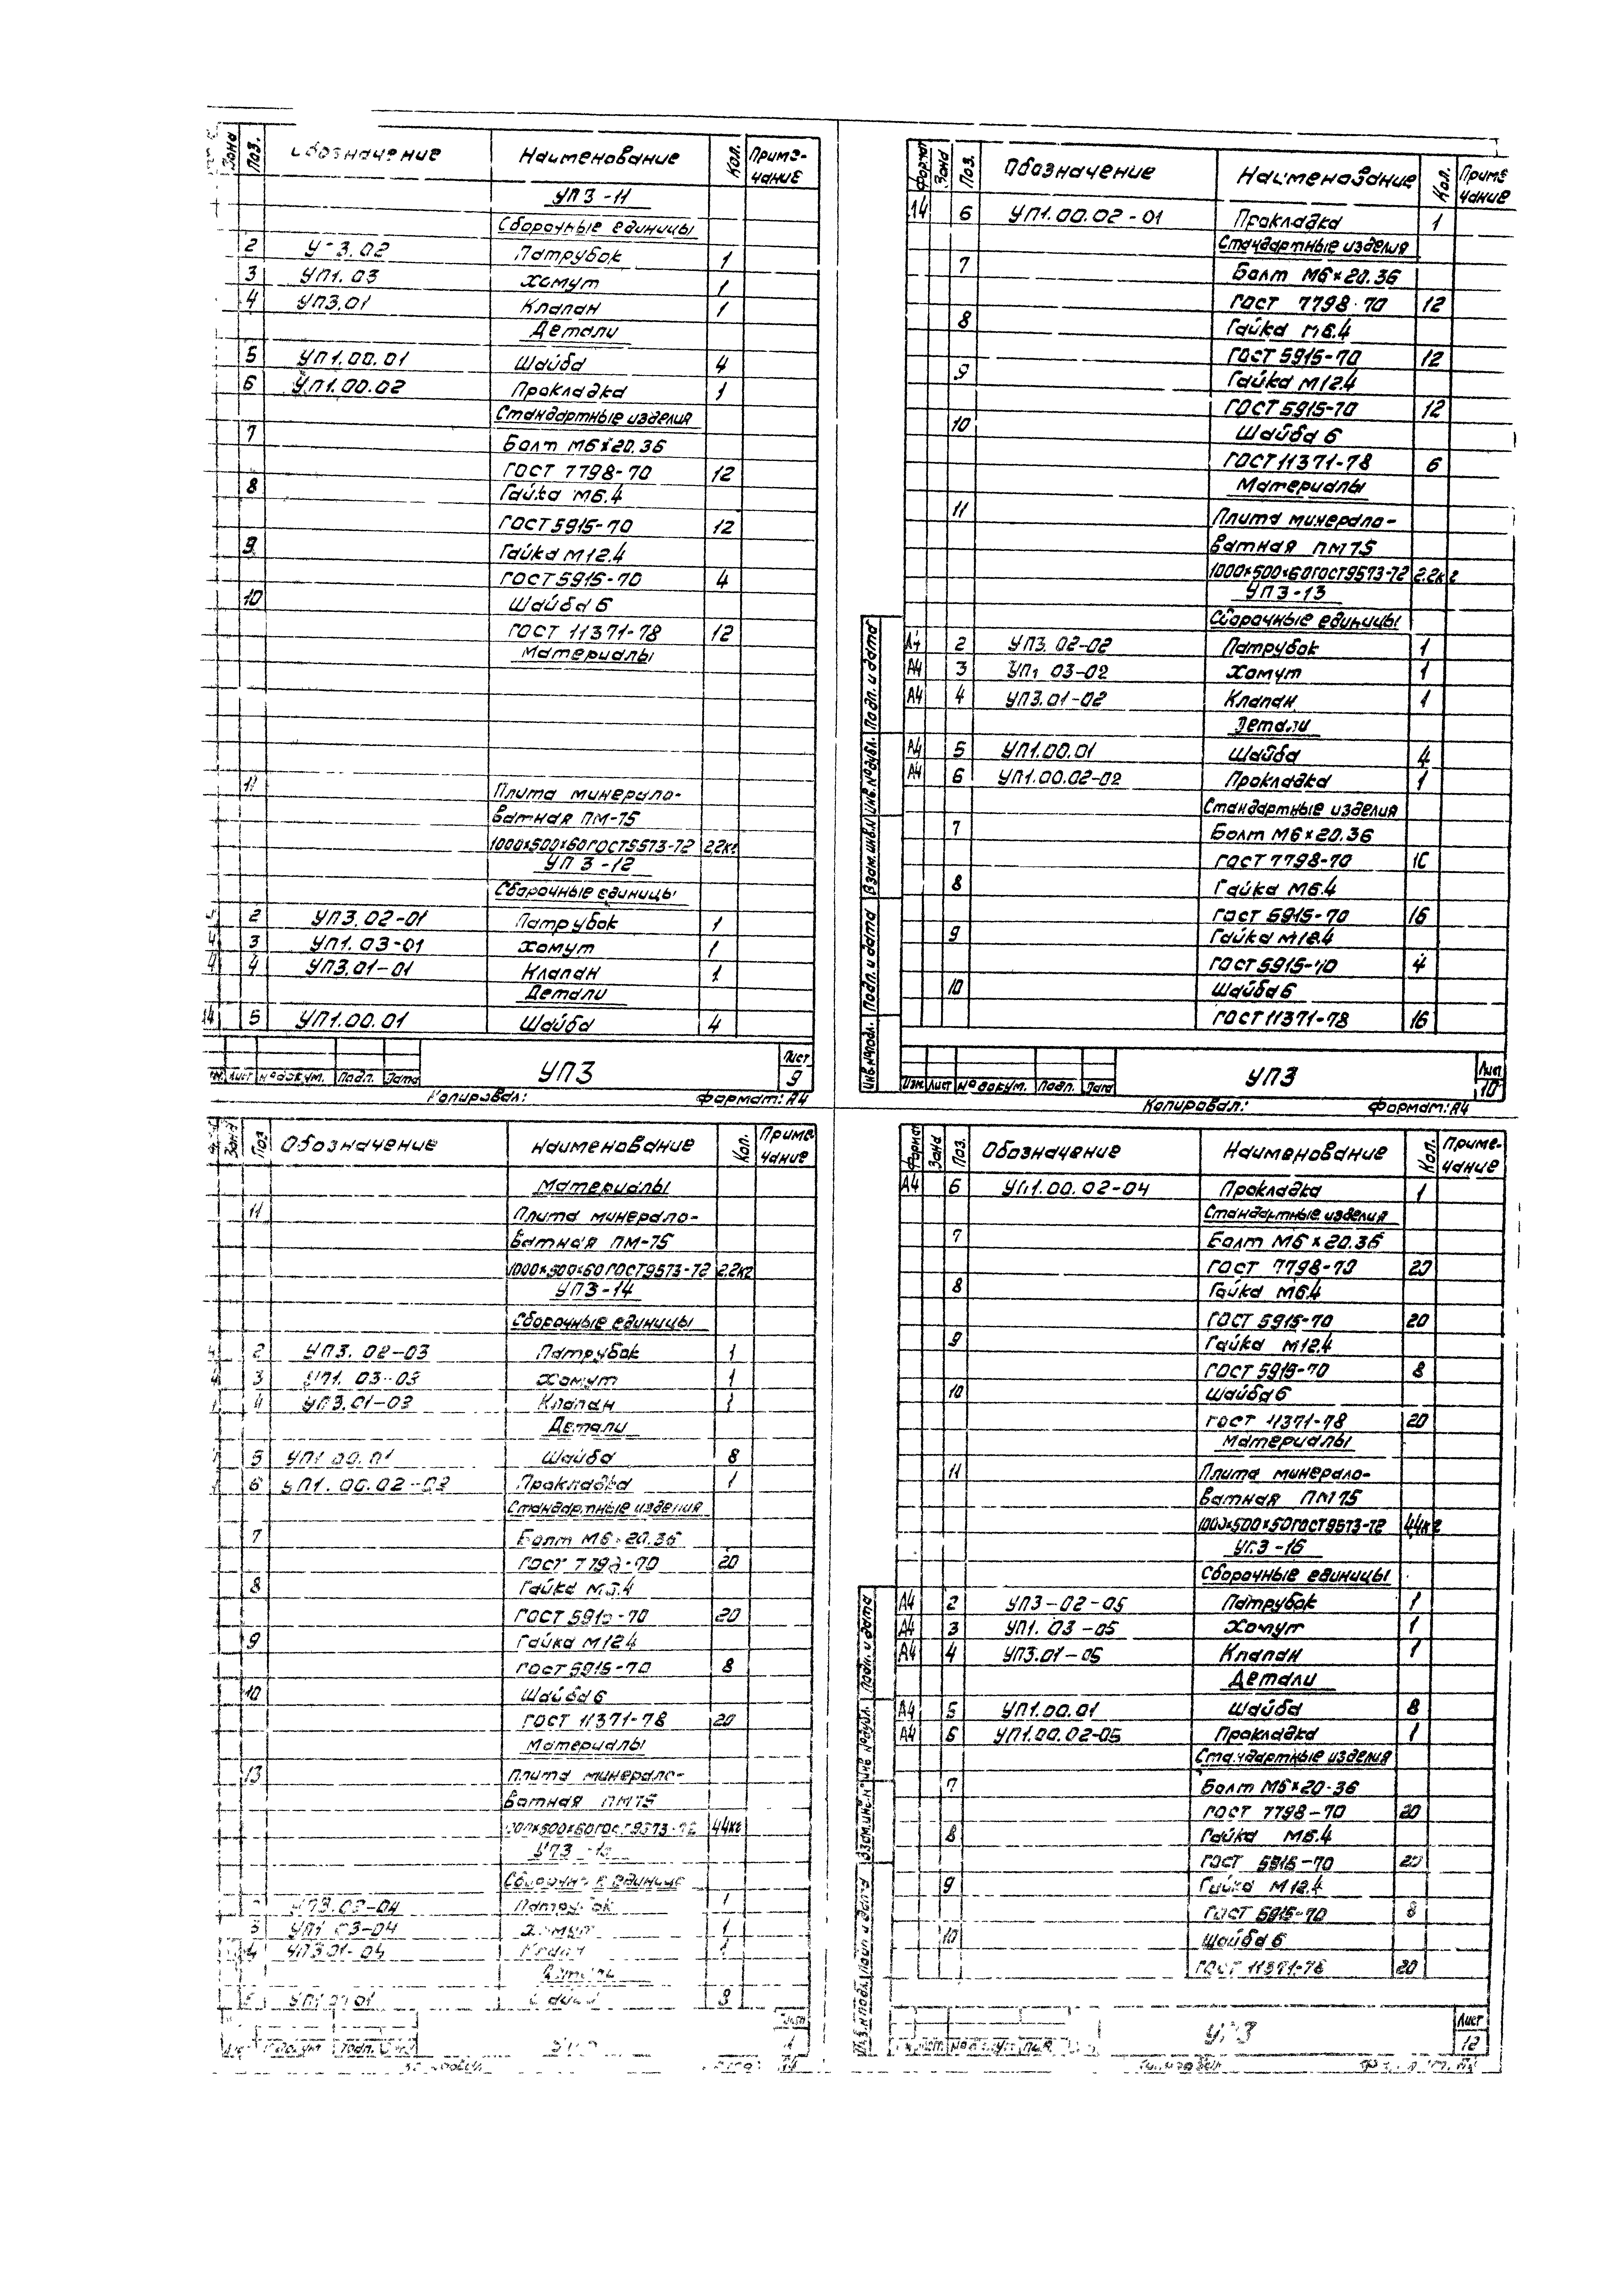 Зона Поз. Обозначение Наименование Кол. Приме-
чание
УП3-11
Сборочные единицы
2 У-3.02 Патрубок 1
3 УП1.03 Хомут 1
4 УП3.01 Клапан 1
Детали
5 УП1.00.01 Шайба 4
6 УП1.00.02 Прокладка 1
Стандартные изделия
7 Болт М6×20.36
ГОСТ 7798-70 12
8 Гайка М6.4
ГОСТ 5915-70 12
9 Гайка М12.4
ГОСТ 5915-70 4
10 Шайба 6
ГОСТ 11371-78 12
Материалы
11 Плита минерало-
ватная ПМ-75
1000×500×60 ГОСТ 9573-72 2.2кг
УП3-12
Сборочные единицы
2 УП3.02-01 Патрубок 1
4 3 УП1.03-01 Хомут 1
4 4 УП3.01-01 Клапан 1
Детали
14 5 УП1.00.01 Шайба 4
Лист № докум. Подп. Дата УП3 Лист
9
Копировал: Формат: А4
Формат Зона Поз. Обозначение Наименование Кол. Приме
чание
14 6 УП1.00.02-01 Прокладка 1
Стандартные изделия
7 Болт М6×20.36
ГОСТ 7798-70 12
8 Гайка М6.4
ГОСТ 5915-70 12
9 Гайка М12.4
ГОСТ 5915-70 12
10 Шайба 6
ГОСТ 11371-78 6
Материалы
11 Плита минерало-
ватная ПМ75
1000×500×60 ГОСТ 9573-72 2.2кг
УП3-13
Сборочные единицы
А4 2 УП3.02-02 Патрубок 1
А4 3 УП1 03-02 Хомут 1
А4 4 УП3.01-02 Клапан 1
Детали
А4 5 УП1.00.01 Шайба 4
А4 6 УП1.00.02-02 Прокладка 1
Стандартные изделия
7 Болт М6×20.36
ГОСТ 7798-70 1С
8 Гайка М6.4
ГОСТ 5915-70 16
9 Гайка М12.4
ГОСТ 5915-70 4
10 Шайба 6
ГОСТ 11371-78 16
Инв.№подл. Подп. и дата Взам.инв.№ Инв.№дубл. Подп. и дата
Изм. Лист № докум. Подп. Дата УП3 Лист
10
Копировал: Формат: А4
Зона Поз Обозначение Наименование Кол. Приме
чание
Материалы
11 Плита минерало-
ватная ПМ-75
1000×500×60 ГОСТ 9573-72 2.2кг
УП3-14
Сборочные единицы
4 2 УП3.02-03 Патрубок 1
4 3 УП1.03-03 Хомут 1
4 УП3.01-03 Клапан 1
Детали
5 УП1.00.01 Шайба 8
6 УП1.00.02-03 Прокладка 1
Стандартные изделия
7 Болт М6×20.36
ГОСТ 7798-70 20
8 Гайка М6.4
ГОСТ 5915-70 20
9 Гайка М12 4
ГОСТ 5915-70 8
10 Шайба 6
ГОСТ 11371-78 20
Материалы
13 Плита минерало-
ватная ПМ75
1000×500×60 ГОСТ 9573-72 44кг
УП3
Сборочные единицы
УП3.02-04 Патрубок 1
3 УП1 03-04 Хомут 1
4 УП3 01-04 Клапан 1
Детали
УП1 00 01 Шайба 8
Формат Зона Поз. Обозначение Наименование Кол. Приме-
чание
А4 6 УП1.00.02-04 Прокладка 1
Стандартные изделия
7 Болт М6×20.36
ГОСТ 7798-70 20
8 Гайка М6.4
ГОСТ 5915-70 20
9 Гайка М12.4
ГОСТ 5915-70 8
10 Шайба 6
ГОСТ 11371-78 20
Материалы
11 Плита минерало-
ватная ПМ75
1000×500×50 ГОСТ 9573-72 4,4кг
УП3-16
Сборочные единицы
А4 2 УП3-02-05 Патрубок 1
А4 3 УП1.03-05 Хомут 1
А4 4 УП3.01-05 Клапан 1
Детали
А4 5 УП1.00.01 Шайба 8
А4 6 УП1.00.02-05 Прокладка 1
Стандартные изделия
7 Болт М6×20-36
ГОСТ 7798-70 20
8 Гайка М6.4
ГОСТ 5915-70 20
9 Гайка М12.4
ГОСТ 5915-70 8
10 Шайба 6
ГОСТ 11371-78 20
УП3 Лист
12